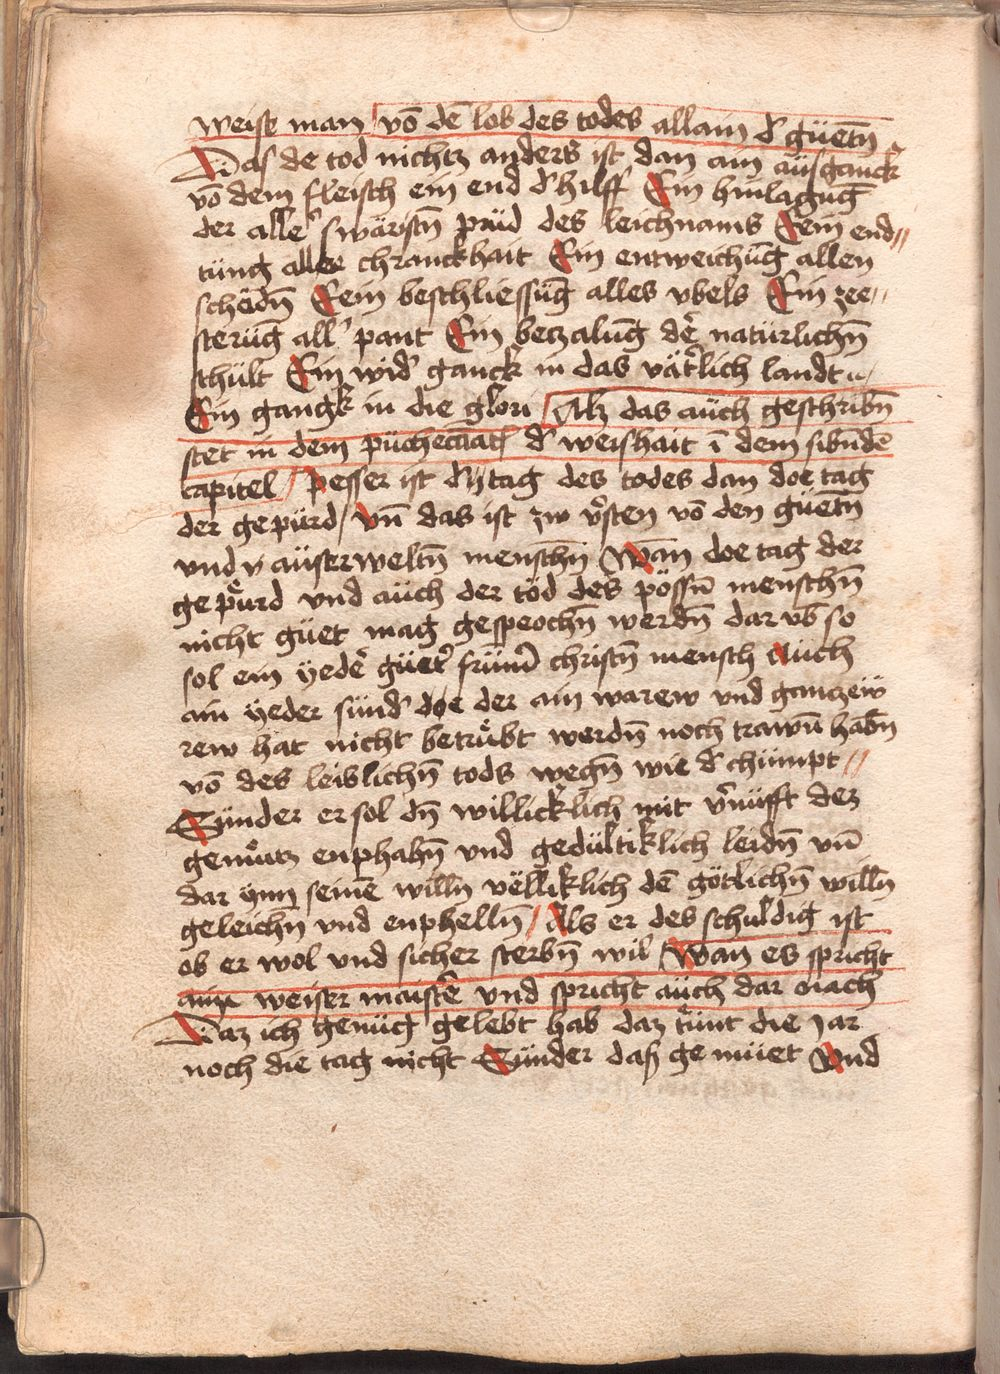 weise man vō dē lob des todes allain d' güetn̄
Das de tod nichtz anders ist dan ain ausganck
vō dem fleisch ein end d' hilff Ein hinlagūg
der alle' swäristn̄ püd des leichnams Eein end„
tüng aller chranckhait Ein entweichūg allen
schëdn̄ Eein beschliessūg alles vbels Ein zee„
sterūg all' pant Ein betzalūg de' natürlichn̄
schült Ein wid' ganck in das vät'lich landt
Ein gangk in die glori Alz das aüch geschribn̄
stet in dem püch d' weishait ī dem sibndē
capitel pesser ist tag des todes dan doe tag
der gepürd vn̄ das ist zw v'sten vō den güetn̄
vnd aüserweltn̄ menschn̄ Wan doe tag der
gepürd vnd aüch der tod des pössn̄ menschn̄
nicht güet mag gesprochn̄ werdn̄ dar vb so
sol ein yede' güet' früm' christn̄ mensch Aüch
ain yeder sünd' doe der ain warew vnd gantzew
rew hat nicht betrübt werdn̄ noch trawn̄ habn̄
vō des leiblichn̄ tods wegn̄ wie d' chümpt
Sünder er sol dn̄ willicklich mit v'nüfft dez
gemütz enphahn̄ vnd gedültiklich leidn̄ vn̄
dar ynn seinē willn̄ vëlliklich dē götlichn̄ willn̄
geleichn̄ vnd enphelln̄ Als er des schuldig ist
ob er wol vnd sicher sterbn̄ wil Wan es spricht
ain weiser maist' vnd spricht aüch dar nach
Daz ich genüg gelebt hab daz tünt die Jar
noch die tag nicht Sünder das gemüet Vnd